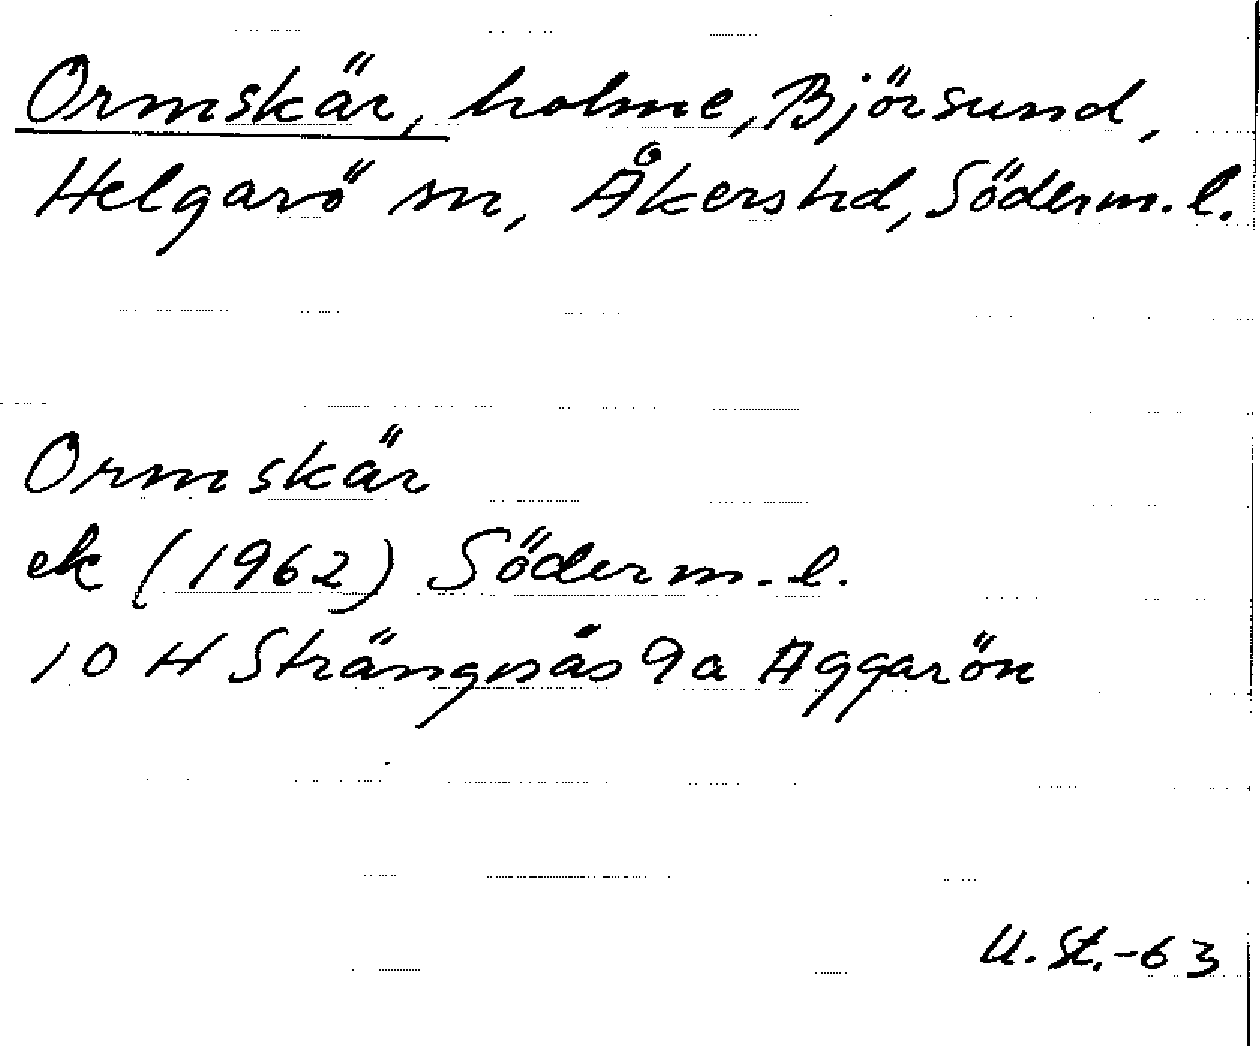 Ormskär, holme, Björsund,
Helgarö sn, Åkers hd, Söderm. l.
Ormskär
ek (1962) Söderm. l.
10 H Strängnäs 9a Aggarön
U. St. -63